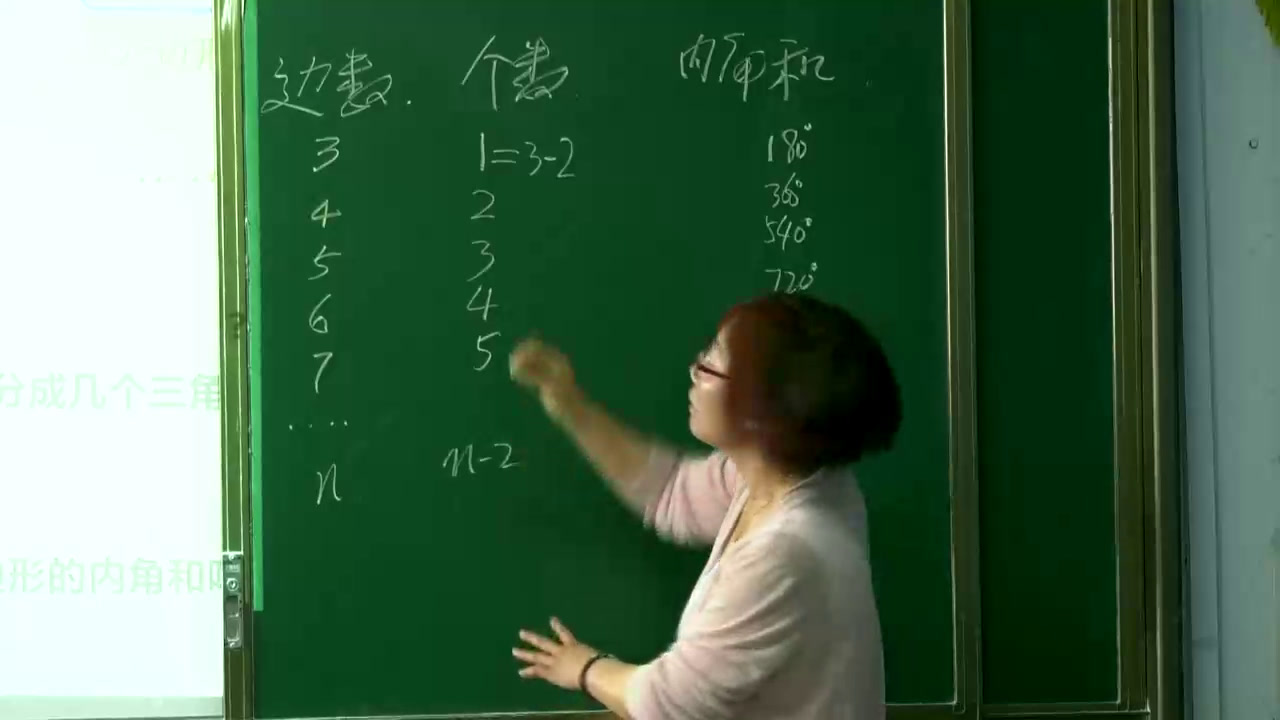 边数. 个数. 内角和.
3 1=3-2 180°
4 2 360°
5 3 540°
6 4 720°
7 5
....
n n-2
分成几个三角
形的内角和